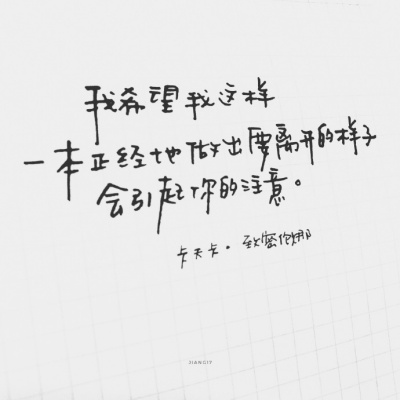 我希望我这样
一本正经地做出要离开的样子
会引起你的注意。
卡夫卡·致密伦娜
JIANGIY